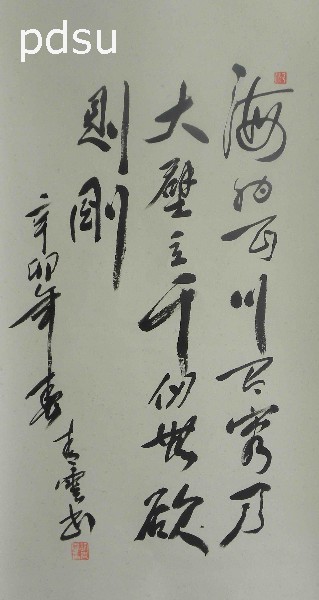 pdsu
海纳百川有容乃
大壁立千仞無欲
則剛
辛卯年春
雲书